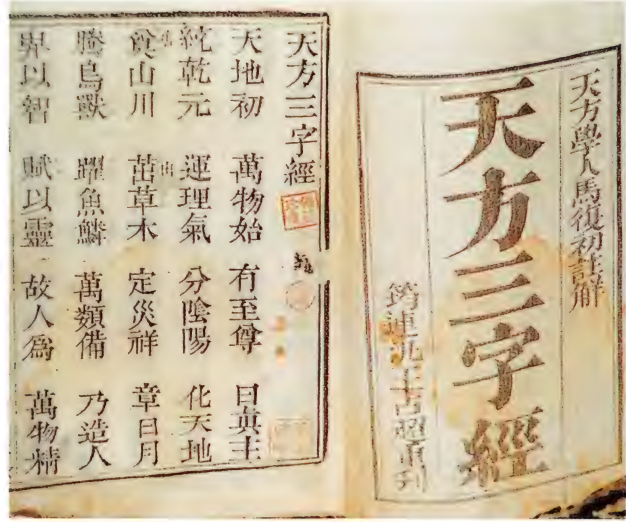 天方學人馬復初註解
天方三字經
筠連
重刊
天方三字經
天地初 萬物始 有至尊 曰眞主
純乾元 運理氣 分陰陽 化天地
奠山川 茁草木 定災祥 章日月
騰鳥獸 躍魚鱗 萬類備 乃造人
畀以智 賦以靈 故人爲 萬物精